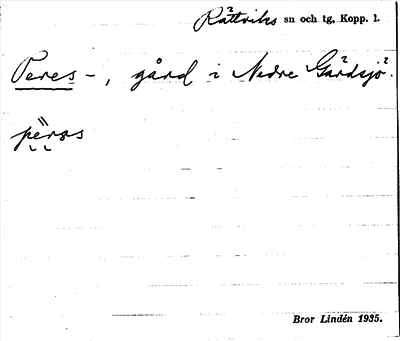 Rättviks sn och tg, Kopp. l.
Peres-, gård i Nedre Gärdsjö.
pèras
Bror Lindén 1935.